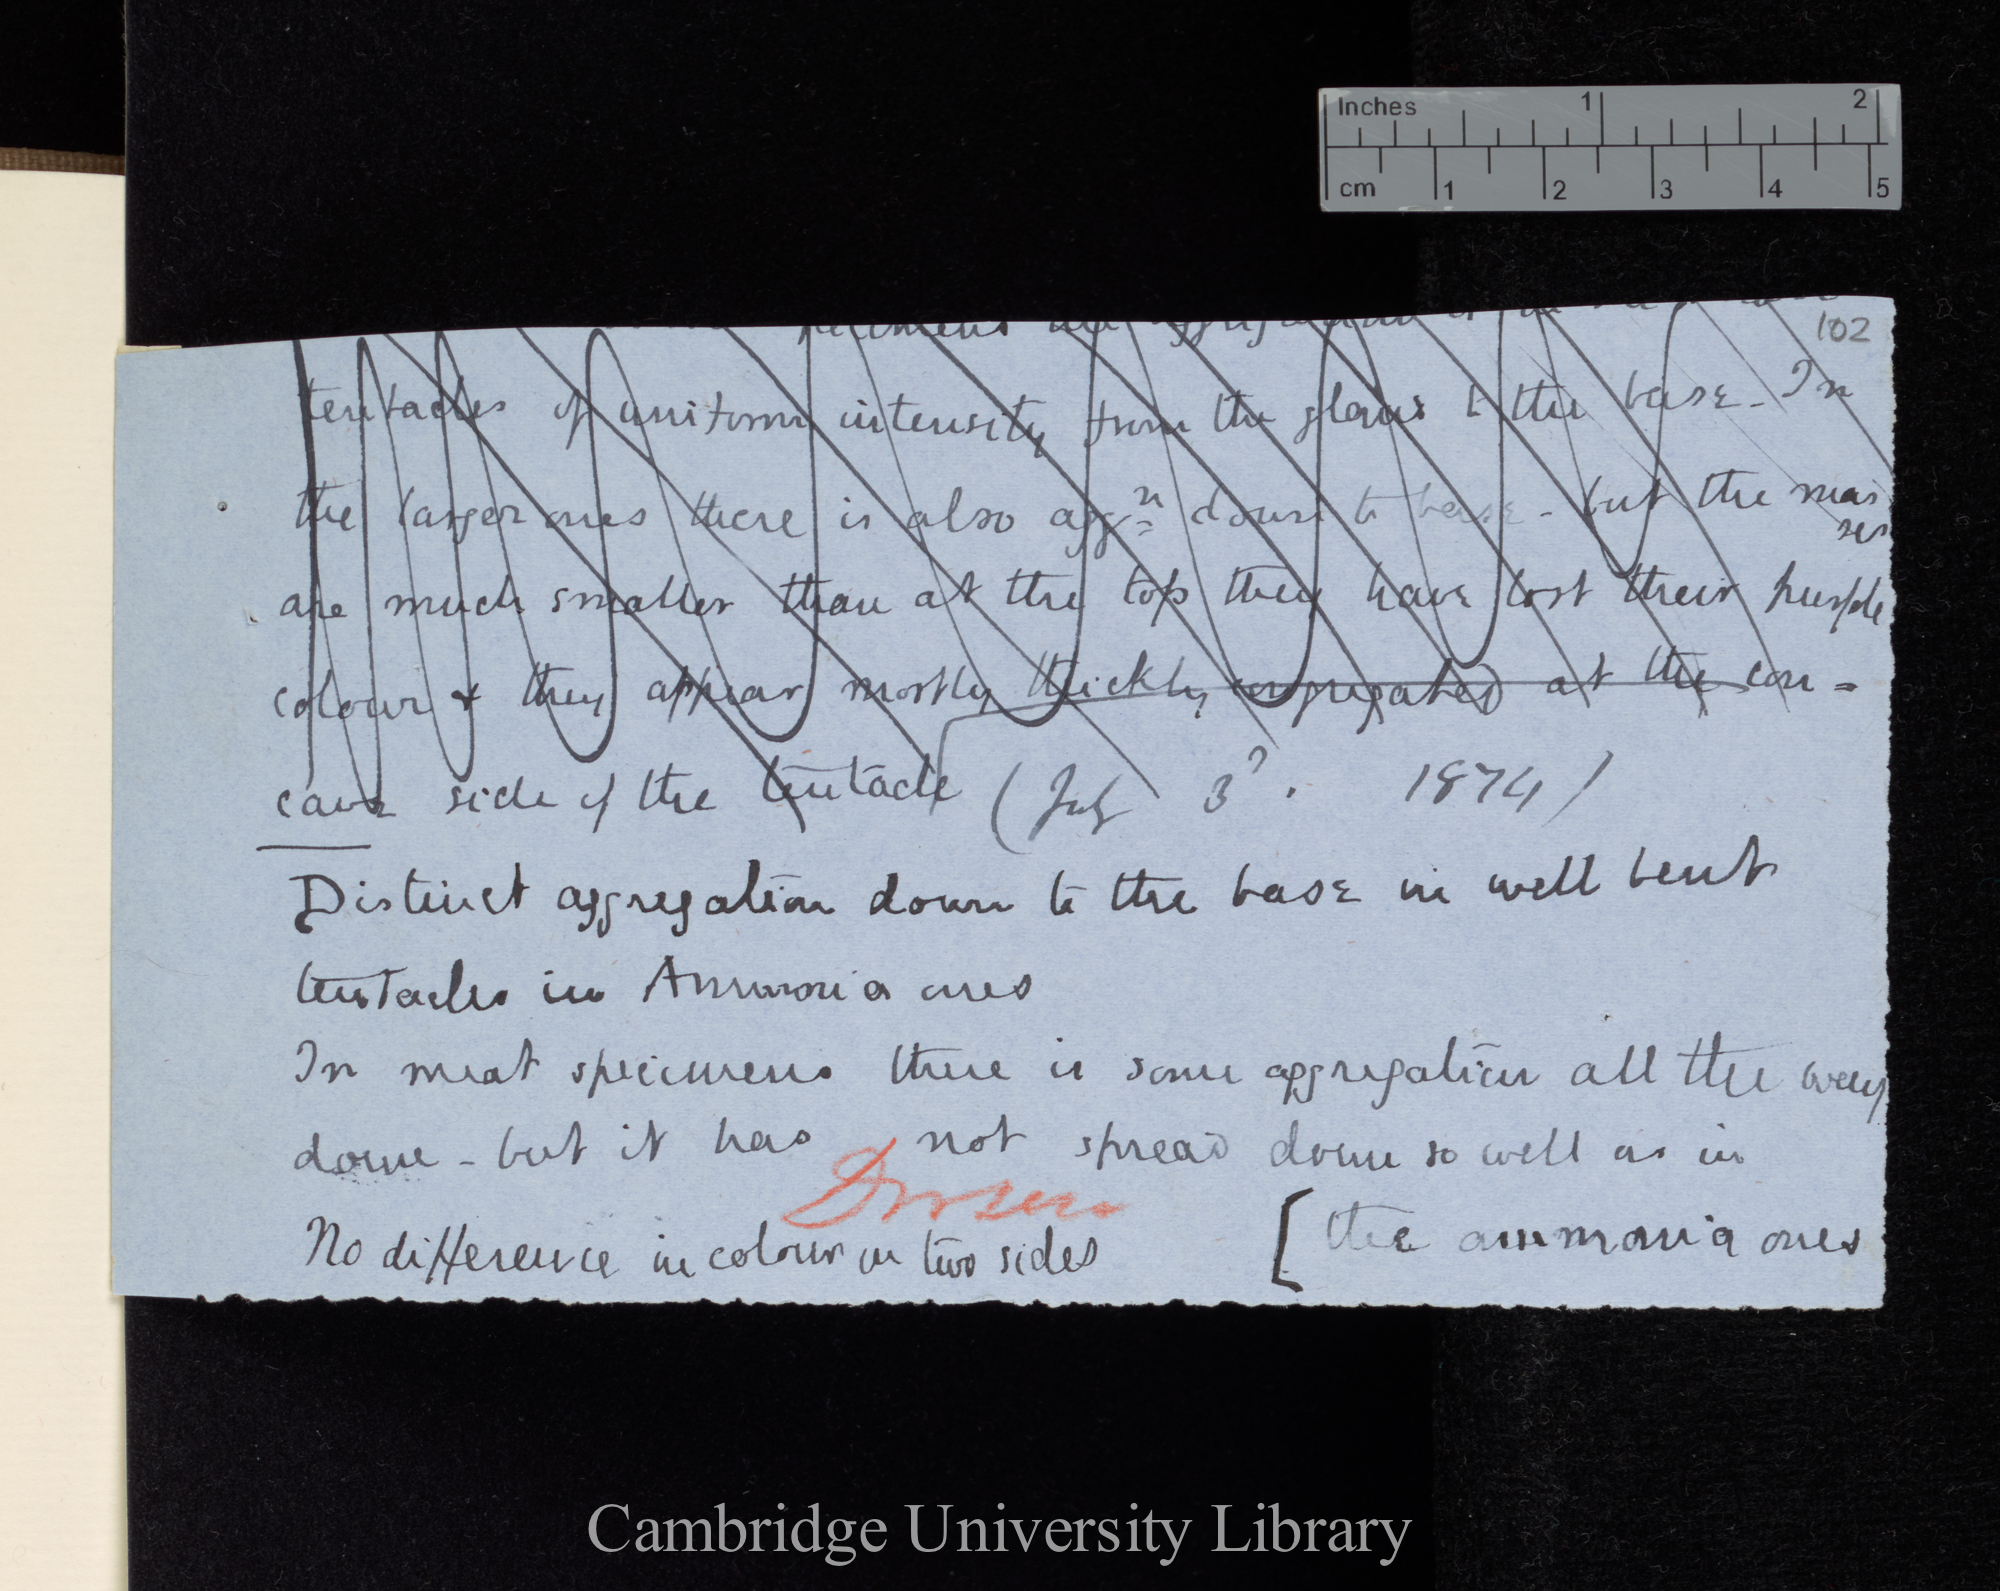 Inches 1 2
cm 1 2 3 4 5
102
specimens the aggregation
tentacles of uniform intensity from the glans to the base. In
the larger ones there is also aggn down to base - but the mas
ses
are much smaller than at the top they have lost their purple
colour & they appear mostly thickly congregated at the con-
cave side of the tentacle (July 3d. 1874)
Distinct aggregation down to the base in well bent
tentacles in Ammonia ones
In meat specimens there is some aggregation all the way
down - but it has not spread down so well as in
[the ammonia ones
Drosera
No difference in colour in two sides
Cambridge University Library